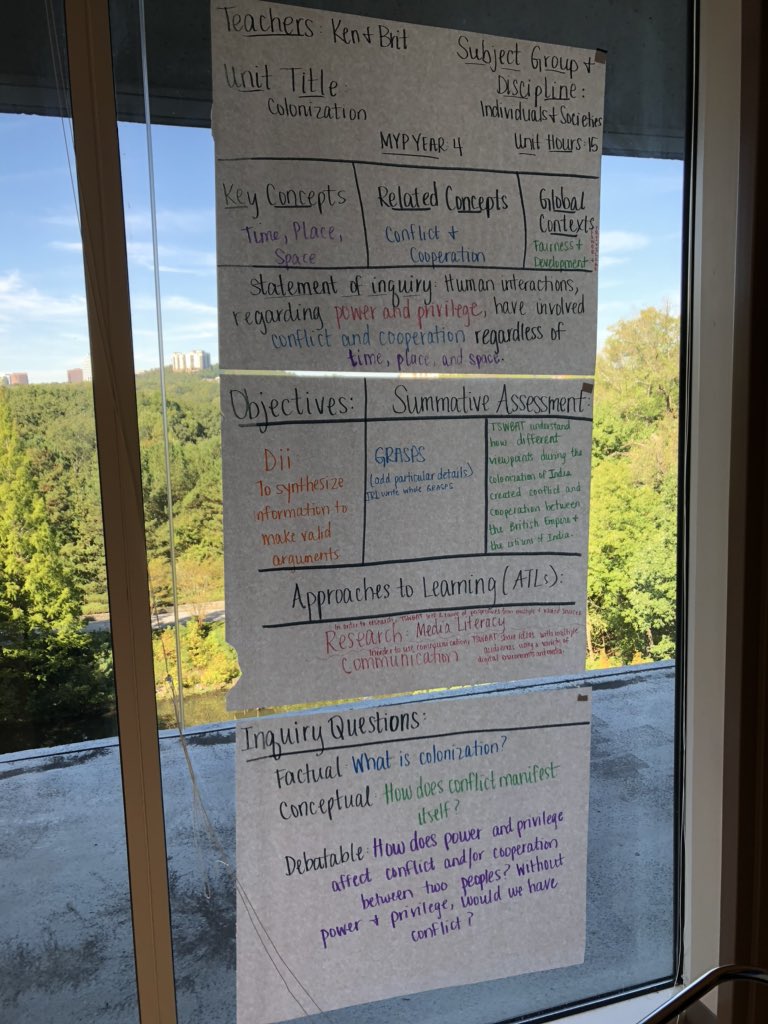 Teachers: Ken & Brit
Subject Group &
Discipline:
Individuals & Societies
Unit Title:
Colonization
MYP YEAR 4
Unit Hours: 15
Key Concepts
Time, Place,
Space
Related Concepts
Conflict &
Cooperation
Global
Contexts
Fairness &
Development
Statement of inquiry: Human interactions,
regarding power and privilege, have involved
conflict and cooperation regardless of
time, place, and space.
Objectives:
Dii
To synthesize
information to
make valid
arguments
Summative Assessment:
GRASPS
(add particular details)
IRL write whole GRASPS
TSWBAT understand
how different
viewpoints during the
colonization of India
created conflict and
cooperation between
the British Empire &
the citizens of India.
Approaches to Learning (ATLs):
In order to research, TSWBAT use a range of perspectives from multiple & varied sources
Research: Media Literacy
In order to use communication, TSWBAT share ideas with multiple
Communication
audiences using a variety of
digital environments and media.
Inquiry Questions:
Factual: What is colonization?
Conceptual: How does conflict manifest
itself?
Debatable: How does power and privilege
affect conflict and/or cooperation
between two peoples? Without
power & privilege, would we have
conflict?